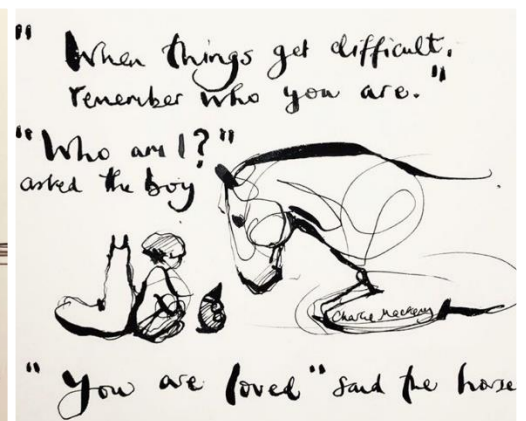 "When things get difficult.
remember who you are."
"Who am I?"
asked the boy
Charlie Mackesy
"You are loved" said the horse